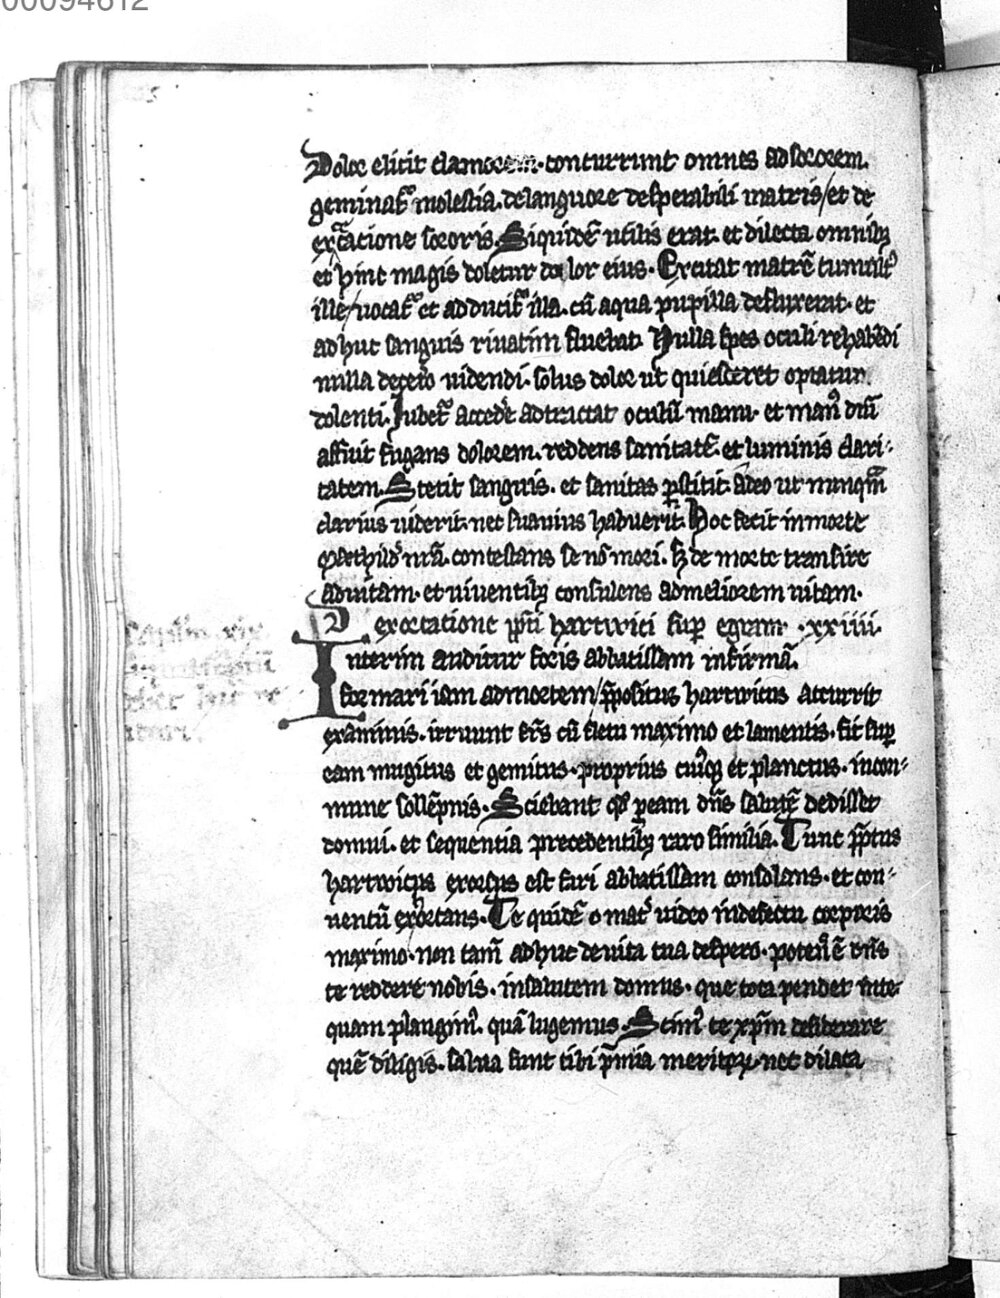 00094612
Dolor elicit clamorem. concurrunt omnes ad sororem.
geminat᷒ molestia. de languore desperabili matris / et de
excecatione sororis. Siquidē utilis erat. et dilecta omnibꝫ
et hinc magis doletur do lor eius. Excitat matrē tumult᷒
ille / uocat᷒ et adducit᷒ illa. cū aqua pupilla defluxerat. et
adhuc sanguis riuatim fluebat. Nulla spes oculi rehabēdi
nulla uidendi. solus dolor ut quiesceret optatur
dolenti. Iubet᷒ accedē adtractat oculū manu. et man᷒ dn̄i
affuit fugans dolorem. reddens sanitatē. et luminis clari-
tatem. Stetit sanguis. et sanitas ꝑstitit. adeo ut nunquā
clarius uiderit. nec suauius habuerit. Hoc fecit in morte
Mechthild᷒ nr̄a. contestans se nō mori. sꝫ de morte transire
ad uitam. et uiuentibꝫ consulens ad meliorem uitam.
D exortatione hartwici suꝑ egram .xxiiii.
Interim auditur foris abbatissam infirmā.
Ifoe mari iam ad mortem / p̄positus hartwicus accurrit
exanimis. irruunt frs̄ cū fletu maximo et lamentis. fit suꝑ
eam mugitus et gemitus. proprius cuiqꝫ et planctus. in con-
mune sollēpnis. Sciebant qd̄ ꝑ eam dn̄s salutē dedisset
domui. et sequentia precedentibꝫ raro similia. Tunc
hartwicus exorsus est fari abbatissam consolans. et con-
uentū exortans. Te quidē o mat᷒ uideo in defectu corporis
maximo. non tam̄ adhuc de uita tua despero. potens ē dn̄s
te reddere nobis. in salutem domus. que tota pendet in te.
quam plangim᷒. quā lugemus. Scim᷒ te xp̄m desiderare
quē diligis. salua sunt tibi p̄mia meritoꝝ. nec dilata